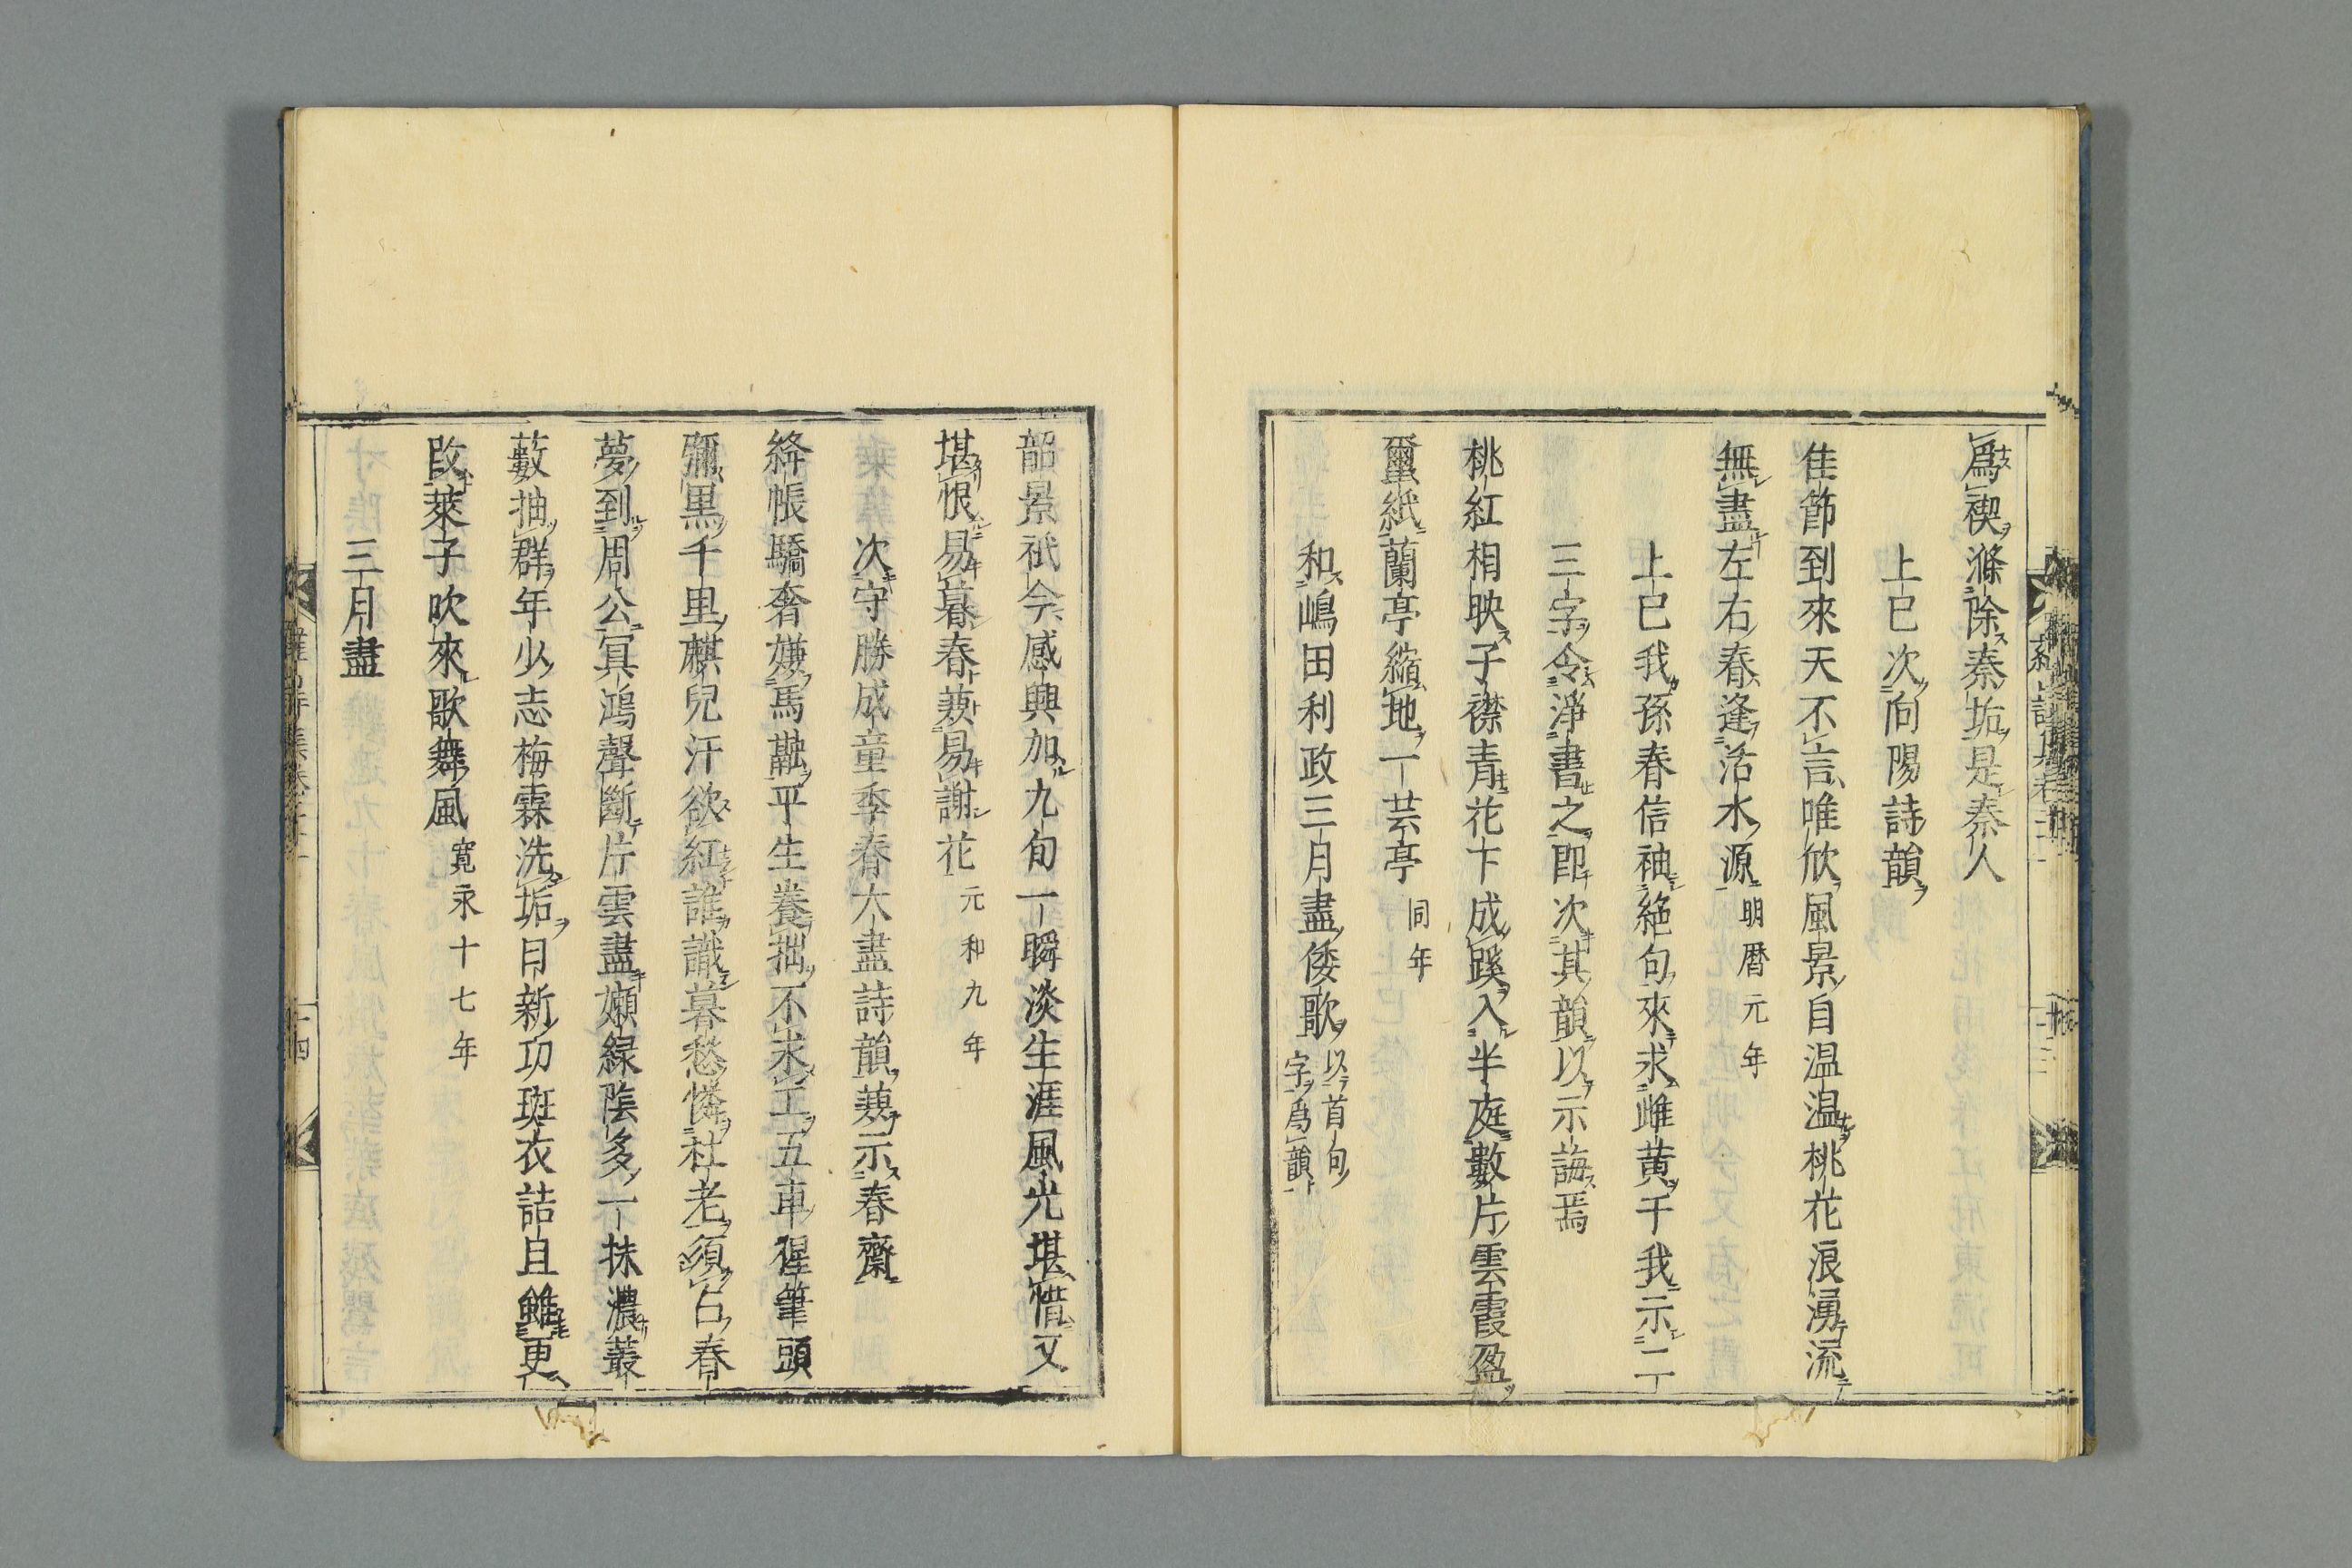 爲禊滌除秦垢是秦人
上巳次向陽詩韻
佳節到來天不言唯欣風景自温温桃花浪湧流
無盡左右春逢活水源明曆元年
上巳我孫春信袖絶句來求雌黄于我示二
三字令淨書之即次其韻以示誨焉
桃紅相映子襟青花下成蹊入半庭數片雲霞盈
璽紙蘭亭縮地一芸亭同年
和嶋田利政三月盡倭歌以首句
字爲韻
韶景祇今感興加九旬一瞬淡生涯風光堪惜又
堪恨易暮春兼易謝花元和九年
次守勝成童季春大盡詩韻兼示春齋
絳帳驕奢嫌馬融平生養拙不求工五車猩筆頭
彌黒千里麒兒汗欲紅誰識暮愁憐杜老須占春
夢到周公冥鴻聲斷片雲盡嫩緑陰多一抹濃叢
藪抽群年少志梅霖洗垢日新功斑衣詰旦雖更
改萊子吹來歌舞風寛永十七年
三月盡